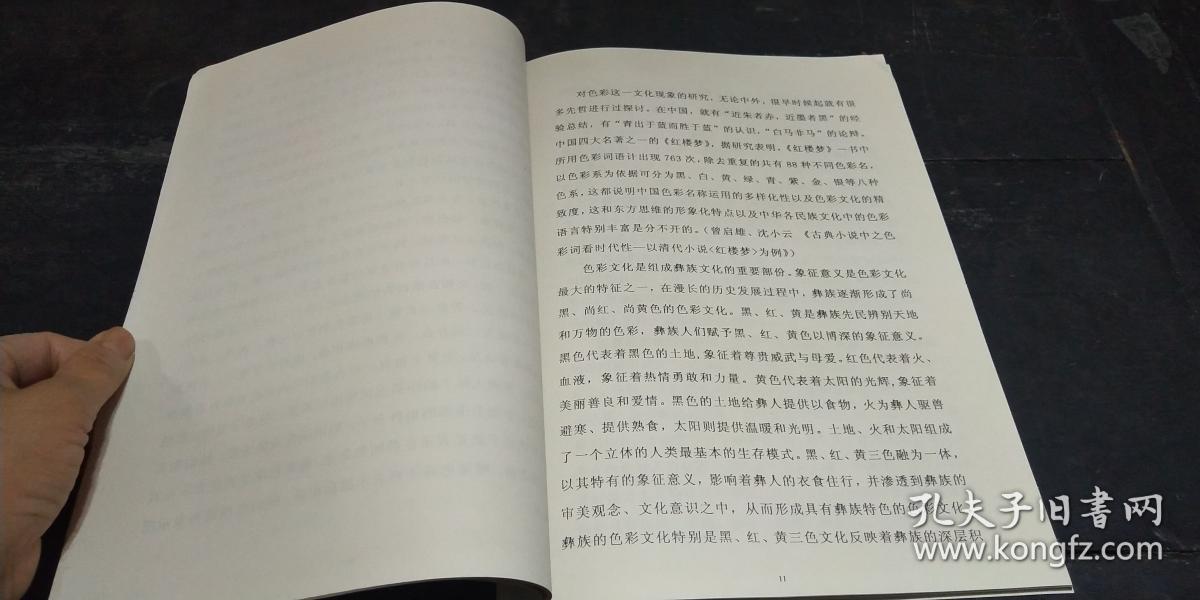 对色彩这一文化现象的研究，无论中外，很早时候起就有很
多先哲进行过探讨。在中国，就有“近朱者赤，近墨者黑”的经
验总结，有“青出于蓝而胜于蓝”的认识，“白马非马”的论辩。
中国四大名著之一的《红楼梦》，据研究表明，《红楼梦》一书中
所用色彩词语计出现763次，除去重复的共有88种不同色彩名，
以色彩系为依据可分为黑、白、黄、绿、青、紫、金、银等八种
色系，这都说明中国色彩名称运用的多样化性以及色彩文化的精
致度，这和东方思维的形象化特点以及中华各民族文化中的色彩
语言特别丰富是分不开的。（曾启雄、沈小云 《古典小说中之色
彩词看时代性—以清代小说<红楼梦>为例》）
色彩文化是组成彝族文化的重要部份。象征意义是色彩文化
最大的特征之一，在漫长的历史发展过程中，彝族逐渐形成了尚
黑、尚红、尚黄色的色彩文化。黑、红、黄是彝族先民辨别天地
和万物的色彩，彝族人们赋予黑、红、黄色以博深的象征意义。
黑色代表着黑色的土地，象征着尊贵威武与母爱。红色代表着火、
血液，象征着热情勇敢和力量。黄色代表着太阳的光辉，象征着
美丽善良和爱情。黑色的土地给彝人提供以食物，火为彝人驱兽
避寒、提供熟食，太阳则提供温暖和光明。土地、火和太阳组成
了一个立体的人类最基本的生存模式。黑、红、黄三色融为一体，
以其特有的象征意义，影响着彝人的衣食住行，并渗透到彝族的
审美观念、文化意识之中，从而形成具有彝族特色的色彩文化。
彝族的色彩文化特别是黑、红、黄三色文化反映着彝族的深层积
11
孔夫子旧书网
www.kongfz.com